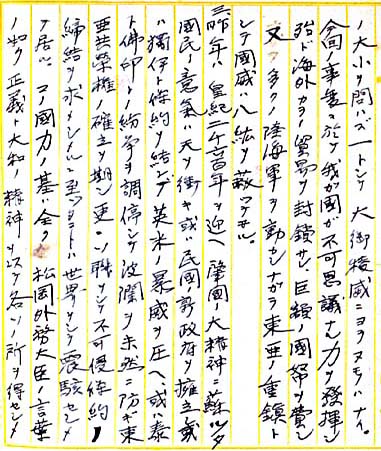 ノ大小ヲ問ハズ一トシテ大御稜威ニヨラヌモノハナイ。
今回ノ事変ニ於テ我ガ国ガ不可思議ナル力ヲ発揮シ
殆ド海外カラノ貿易ヲ封鎖サレ巨額ノ國帑ヲ費シ
又多クノ陸海軍ヲ動シナガラ東亜ノ重鎮ト
シテ國威ハ八紘ヲ蔽ツテヰル。
昨年ハ皇紀二千六百年ヲ迎ヘ肇國ノ大精神ニ蘇ツタ
國民ノ意氣ハ天ヲ衝キ或ハ民國新政府ヲ擁立或
ハ獨伊ト條約ヲ結ンデ英米ノ暴威ヲ圧ヘ、或ハ泰
ト佛印トノ紛争ヲ調停シテ波瀾ヲ未然ニ防ギ東
亜共榮権ノ確立ヲ期シ更ニソ聯ヲシテ不可侵條約ノ
締結ヲ求メシメルニ至ツタコトハ世界ヲシテ震駭セシメ
テ居ル。コノ國力ノ基ハ全ク松岡外務大臣ノ言葉
ノ如ク正義ト大和ノ精神ヲ以テ各々ソノ所ヲ得セシメ